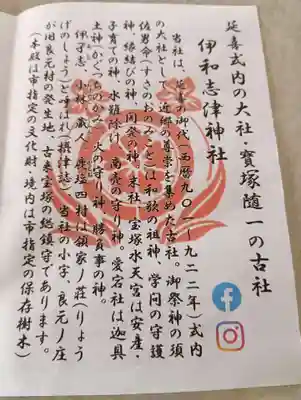 延喜式内の大社・寳塚随一の古社
伊和志津神社
当社は、延喜の御代(西暦九〇一〜九二二年)式内
の大社として、近郷の尊崇を集めた古社。御祭神の須
佐男命(すさのおのみこと)は和歌の祖神、学問の守護
神、縁結びの神、開発の神。末社、宝塚水天宮は安産・
子育ての神、水難除け、商売の守り神。愛宕社は迦具
土神(かぐつちのかみ)、火の守り神、勝負事の神。
伊孑志、小林、蔵人、鹿塩、四村は領家ノ荘(りょう
げのしょう)と呼ばれ(摂津誌)当社の小字、良元ノ庄
が旧良元村の発生地。古来宝塚の総鎮守であります。
(本殿は市指定の文化財・境内は市指定の保存樹木)